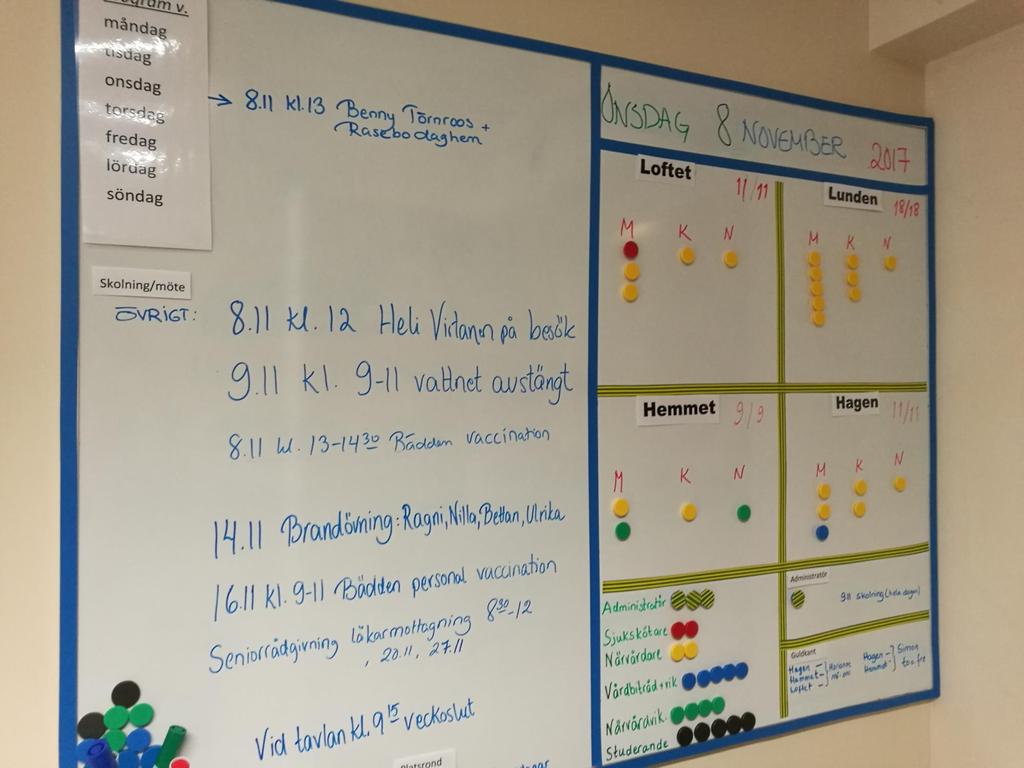 måndag
tisdag
onsdag
torsdag
fredag
lördag
söndag
→ 8.11 kl.13 Benny Törnroos +
Rasebo daghem
Skolning/möte
ÖVRIGT:
8.11 kl. 12 Heli Virtanen på besök
9.11 kl. 9-11 vattnet avstängt
8.11 kl. 13-14³⁰ Bädden vaccination
14.11 Brandövning: Ragni, Nilla, Bettan, Ulrika
16.11 kl. 9-11 Bädden personal vaccination
Seniorrådgivning läkarmottagning 8³⁰-12
, 20.11, 27.11
Vid tavlan kl. 9¹⁵ veckoslut
ONSDAG 8 NOVEMBER 2017
Loftet 11/11
M K N
Lunden 18/18
M K N
Hemmet 9/9
M K N
Hagen 11/11
M K N
Administratör
Sjukskötare
Närvårdare
Vårdbiträd+vik
Närvårdvik.
Studerande
Administratör
9.11 skolning (hela dagen)
Guldkant
Hagen
Hemmet
Loftet
Hagen
Hemmet
Simon